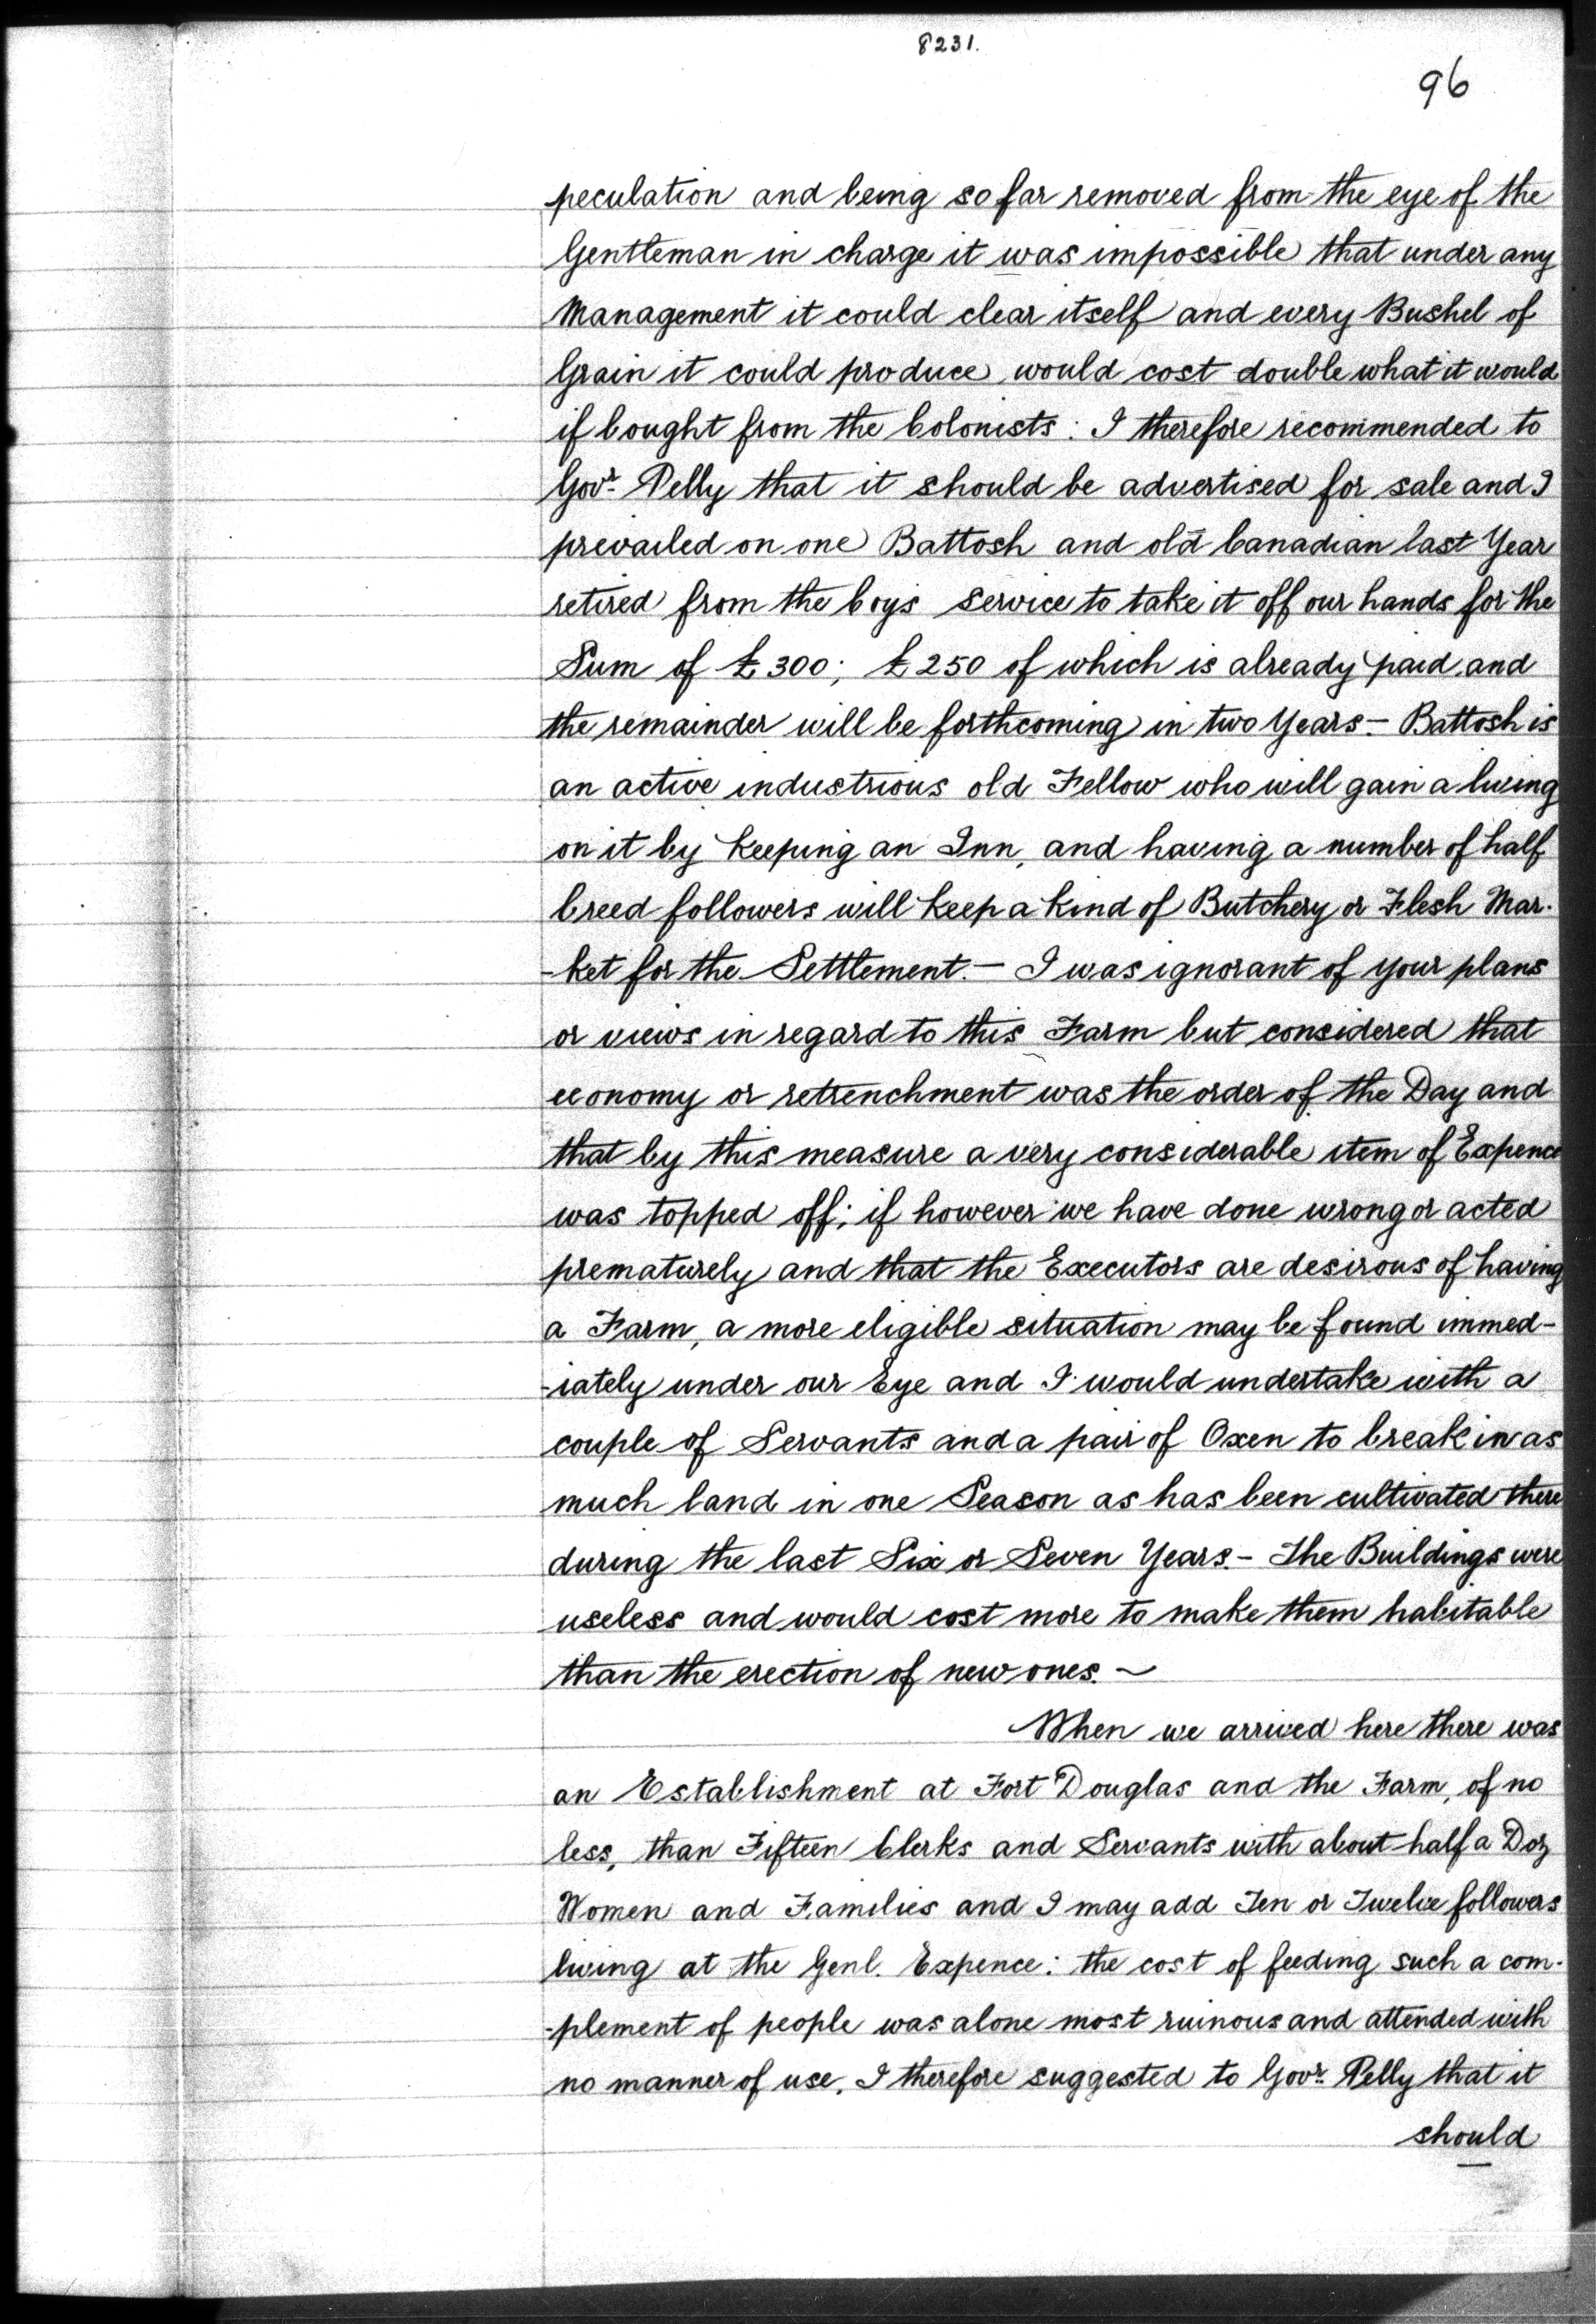 8231.
96
peculation and being so far removed from the eye of the
Gentleman in charge it was impossible that under any
Management it could clear itself and every Bushel of
Grain it could produce would cost double what it would
if bought from the Colonists: I therefore recommended to
Govr. Pelly that it should be advertised for sale and I
prevailed on one Battosh and old Canadian last Year
retired from the Coys service to take it off our hands for the
Sum of £300; £250 of which is already paid and
the remainder will be forthcoming in two Years.- Battosh is
an active industrious old Fellow who will gain a living
on it by keeping an Inn, and having a number of half
breed followers will keep a kind of Butchery or Flesh Mar-
-ket for the Settlement.- I was ignorant of your plans
or views in regard to this Farm but considered that
economy or retrenchment was the order of the Day and
that by this measure a very considerable item of Expence
was topped off; if however we have done wrong or acted
prematurely and that the Executors are desirous of having
a Farm, a more eligible situation may be found immed-
-iately under our Eye and I would undertake with a
couple of Servants and a pair of Oxen to break in as
much land in one Season as has been cultivated there
during the last Six or Seven Years.- The Buildings were
useless and would cost more to make them habitable
than the erection of new ones. ~
When we arrived here there was
an Establishment at Fort Douglas and the Farm, of no
less, than Fifteen Clerks and Servants with about half a Doz
Women and Families and I may add Ten or Twelve followers
living at the Genl. Expence: the cost of feeding such a com-
-plement of people was alone most ruinous and attended with
no manner of use. I therefore suggested to Govr. Pelly that it
should